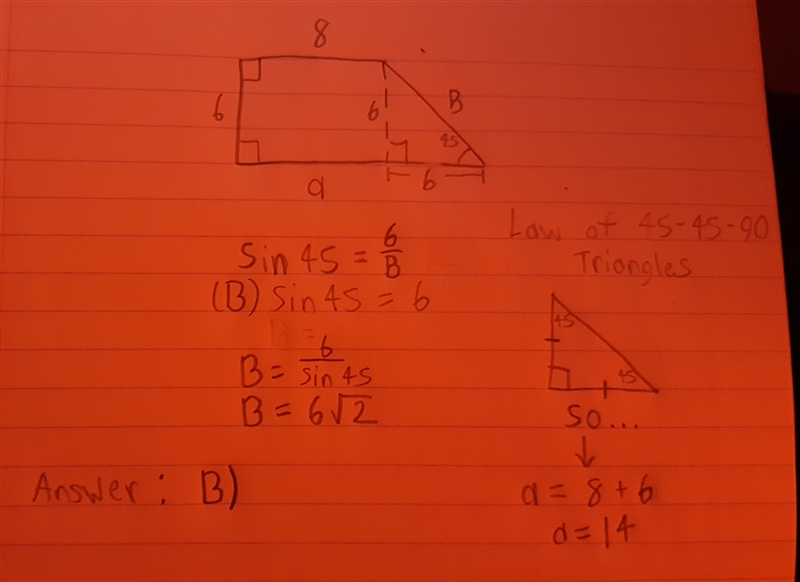 8
6 6 B
45
a 6
Law of 45-45-90
Triangles
Sin 45 = 6/B
(B) Sin 45 = 6
B =
B = 6/sin 45
B = 6√2
45
45
so...
↓
a = 8 + 6
a = 14
Answer: B)